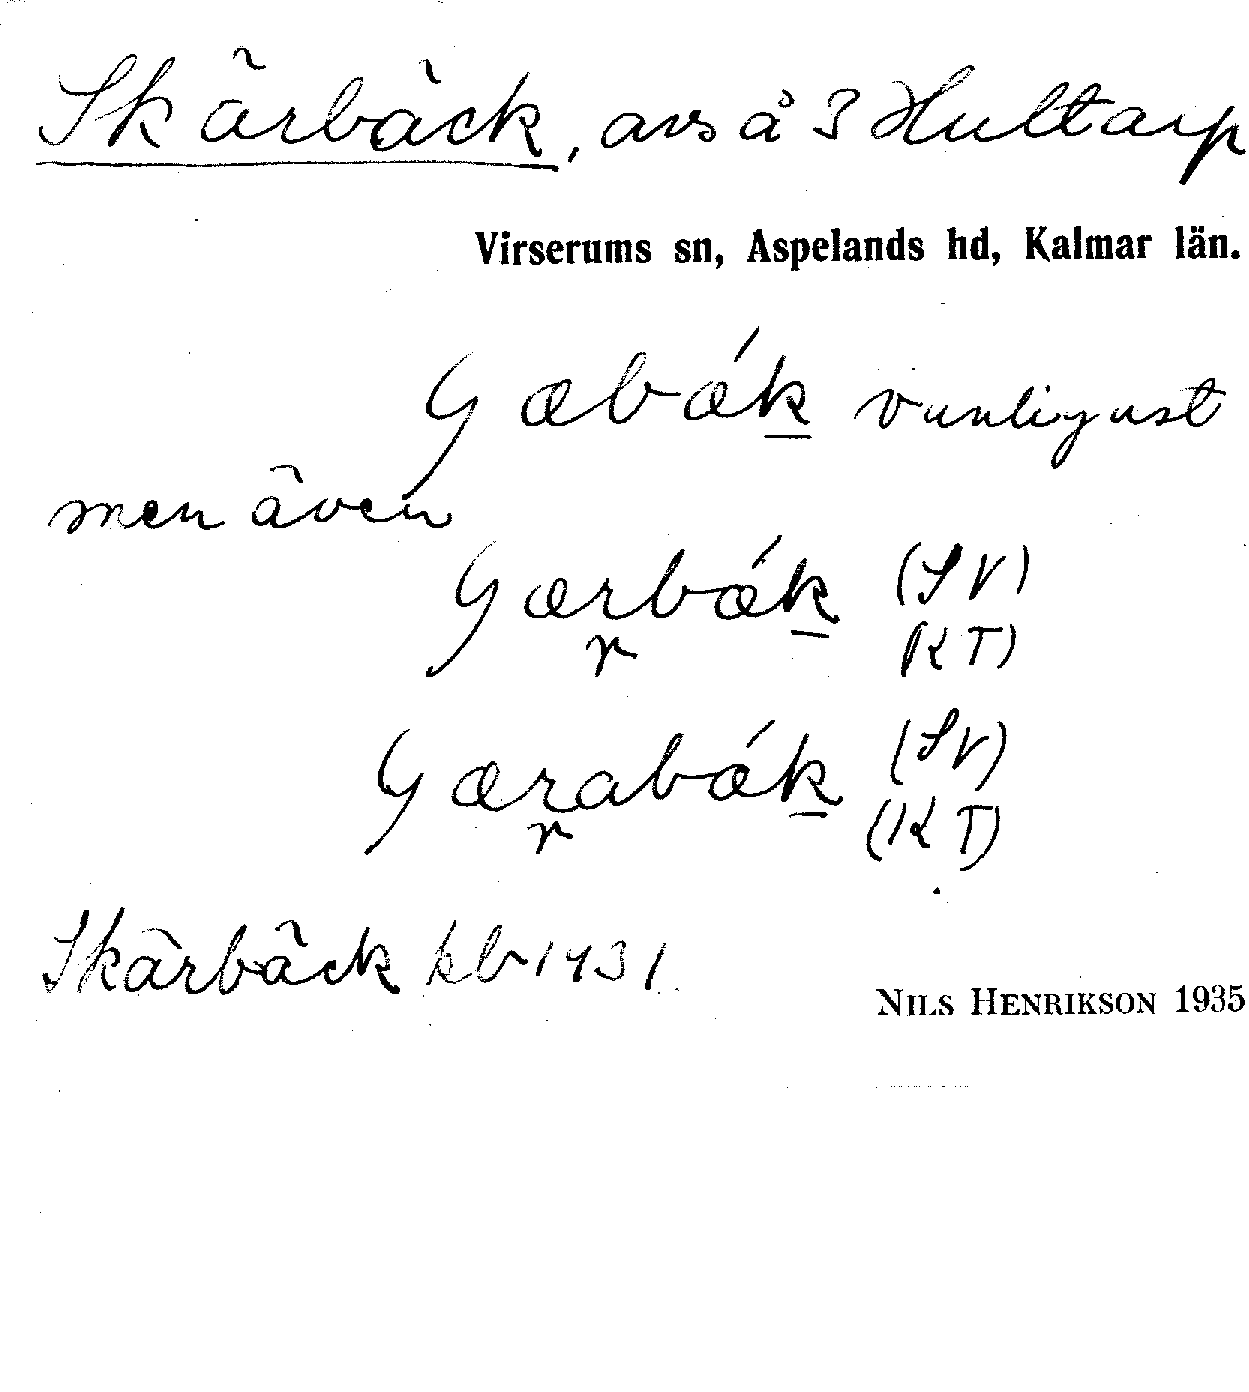 Skärbäck, avs å 3 Hultarp
Virserums sn, Aspelands hd, Kalmar län.
vanligast
men även
(SV)
(KT)
(SV)
(KT)
Skärbäck kb 1931
NILS HENRIKSON 1935